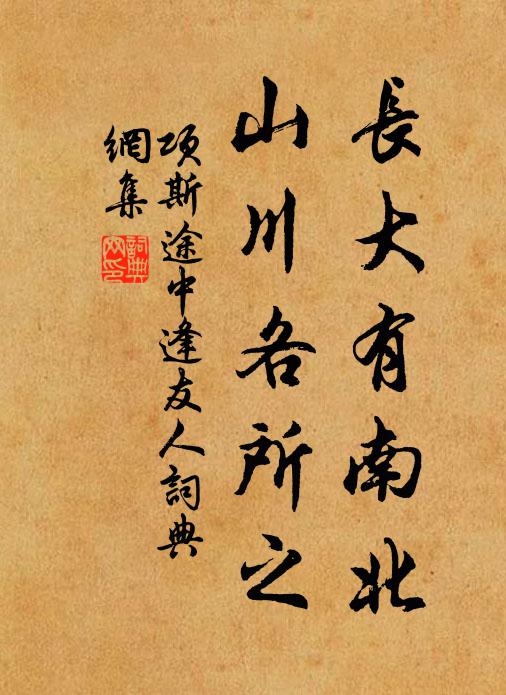 長大有南北
山川各所之
項斯途中逢友人詞典
網集
詞典网印